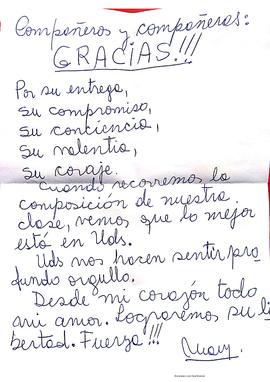 Compañeros y compañeras:
GRACIAS!!!
Por su entrega,
su compromiso,
su conciencia,
su valentía,
su coraje.
Cuando recorremos la
composición de nuestra
clase, vemos que lo mejor
está en Uds.
Uds nos hacen sentir pro
fundo orgullo.
Desde mi corazón todo
mi amor. Lograremos su li
bertad. Fuerza!!!